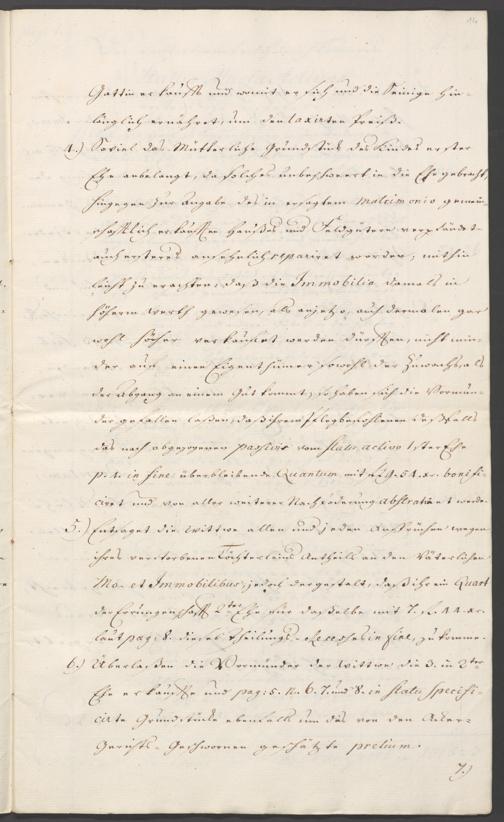 Gattin erkauft und womit er sich und die Seinige hin-
länglich ernähret, um den taxirten Preiß.
4.) Soviel das Mütterliche Grundstück des Kindes erster
Ehe anbelangt, da solches unbeschwert in die Ehe gebracht,
hingegen zur Angabe des in ersagtem matrimonio gemein-
schaftlich erkauften Haußes und Feldgütern verpfändet-
auch ersteres ansehnlich repariret worden; mithin
leicht zu erachten, daß die Immobilia damals in
höherm Werth gewesen, als anjetzo, auch dermalen gar
wohl höher verkaufet werden dürften, nicht min-
der auch einem Eigenthümer sowohl der Zuwachs als
der Abgang an einem Gut kommt, so haben sich die Vormün-
der gefallen laßen, daß ihrem Pflegbefohlenen deßfalls
das nach abgezogenen passivis vom statu activo 1ster Ehe
p. 4. in fine überbleibende Quantum mit 54. xr. bonifi-
ciret und von aller weiterer Nachforderung abstrahiret werde.
5.) Entsaget die Wittwe allen und jeden Ansprüchen wegen
ihres verstorbenen Töchterleins Antheils an den Väterlichen
Mo- et Immobilibus, jedoch dergestalt, daß ihr ein Quart
der Errungenschaft 2ter Ehe für dasselbe mit 7. fl. 44. xr.
laut pag. 8. dieses Theilungs-Recesses in fine, zu komme.
6.) Überlaßen die Vormünder der Wittwe die 3. in 2ter
Ehe erkaufte und pag. 5. N. 6. 7. und 8. in statu specifi-
cirte Grundstücke ebenfalls um das von den Acker-
Gerichts-Geschwornen geschätzte pretium.
7.)